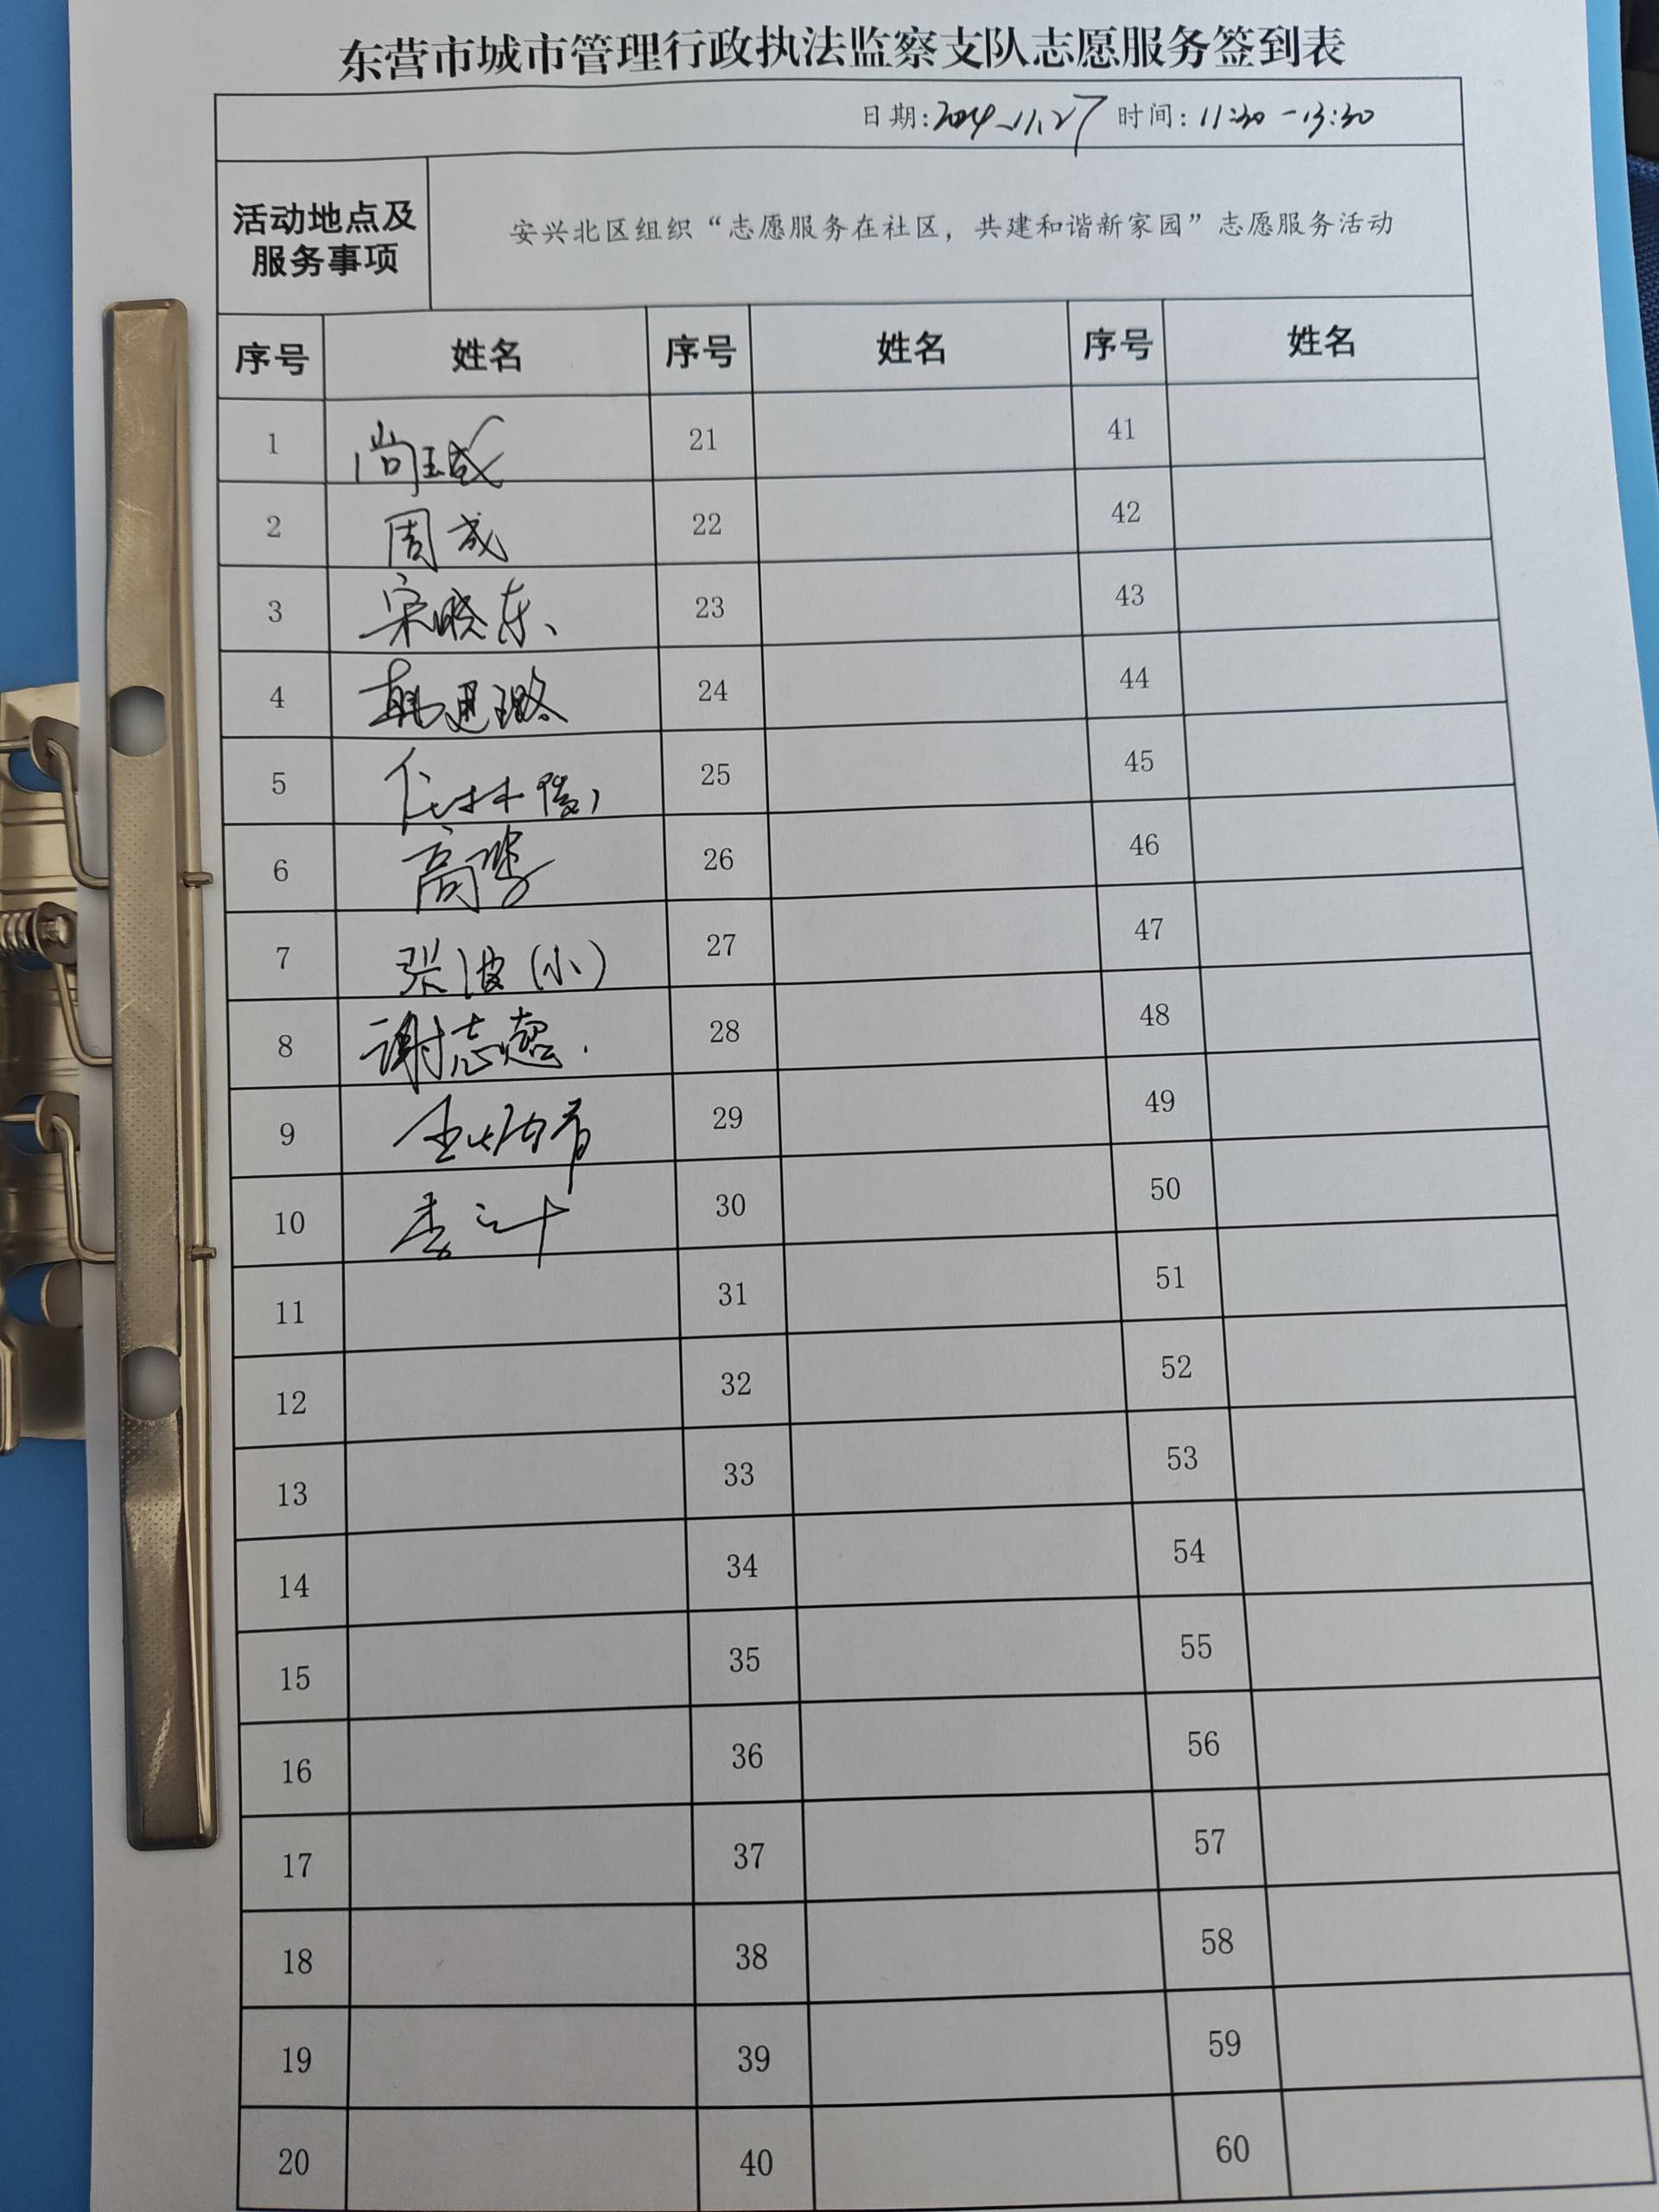 东营市城市管理行政执法监察支队志愿服务签到表
日期:2024.11.27 时间:11:30-13:30
活动地点及
服务事项
安兴北区组织“志愿服务在社区，共建和谐新家园”志愿服务活动
序号 姓名 序号 姓名 序号 姓名
1 尚 21 41
2 周成 22 42
3 宋晓东 23 43
4 韩 24 44
5 25 45
6 高 26 46
7 张波(小) 27 47
8 谢志超 28 48
9 29 49
10 李 30 50
11 31 51
12 32 52
13 33 53
14 34 54
15 35 55
16 36 56
17 37 57
18 38 58
19 39 59
20 40 60